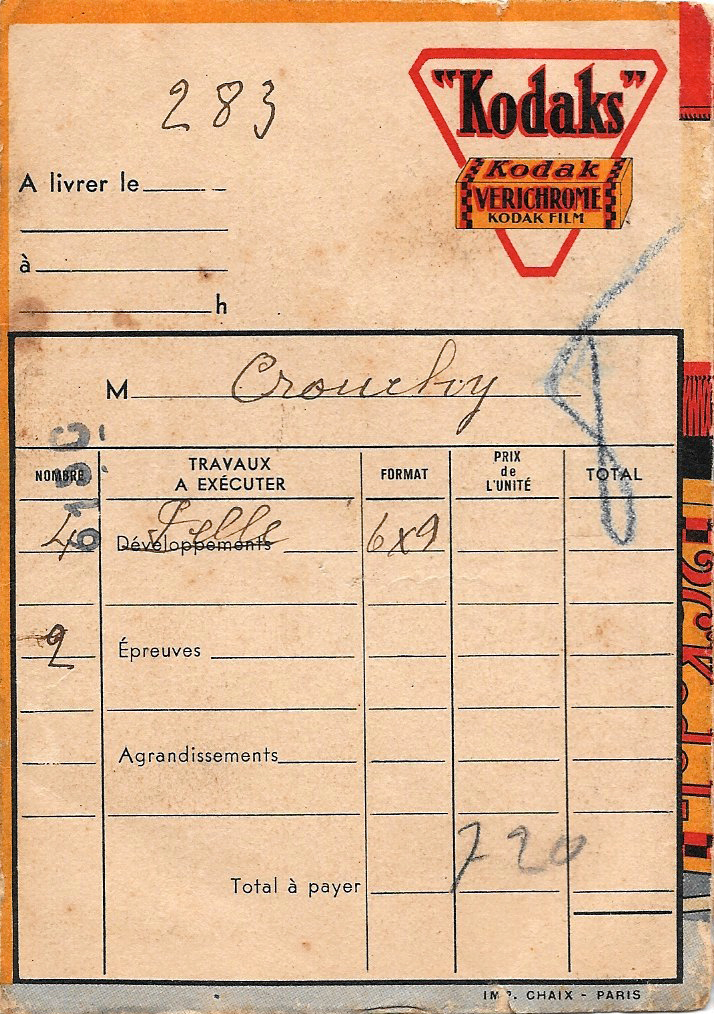 283
"Kodaks"
Kodak
VERICHROME
KODAK FILM
A livrer le
à
h
M
615C
NOMBRE TRAVAUX A EXÉCUTER FORMAT PRIX de L'UNITÉ TOTAL
4 Pelle Développements 6x9
2 Épreuves
Agrandissements
Total à payer 720
IMP. CHAIX - PARIS